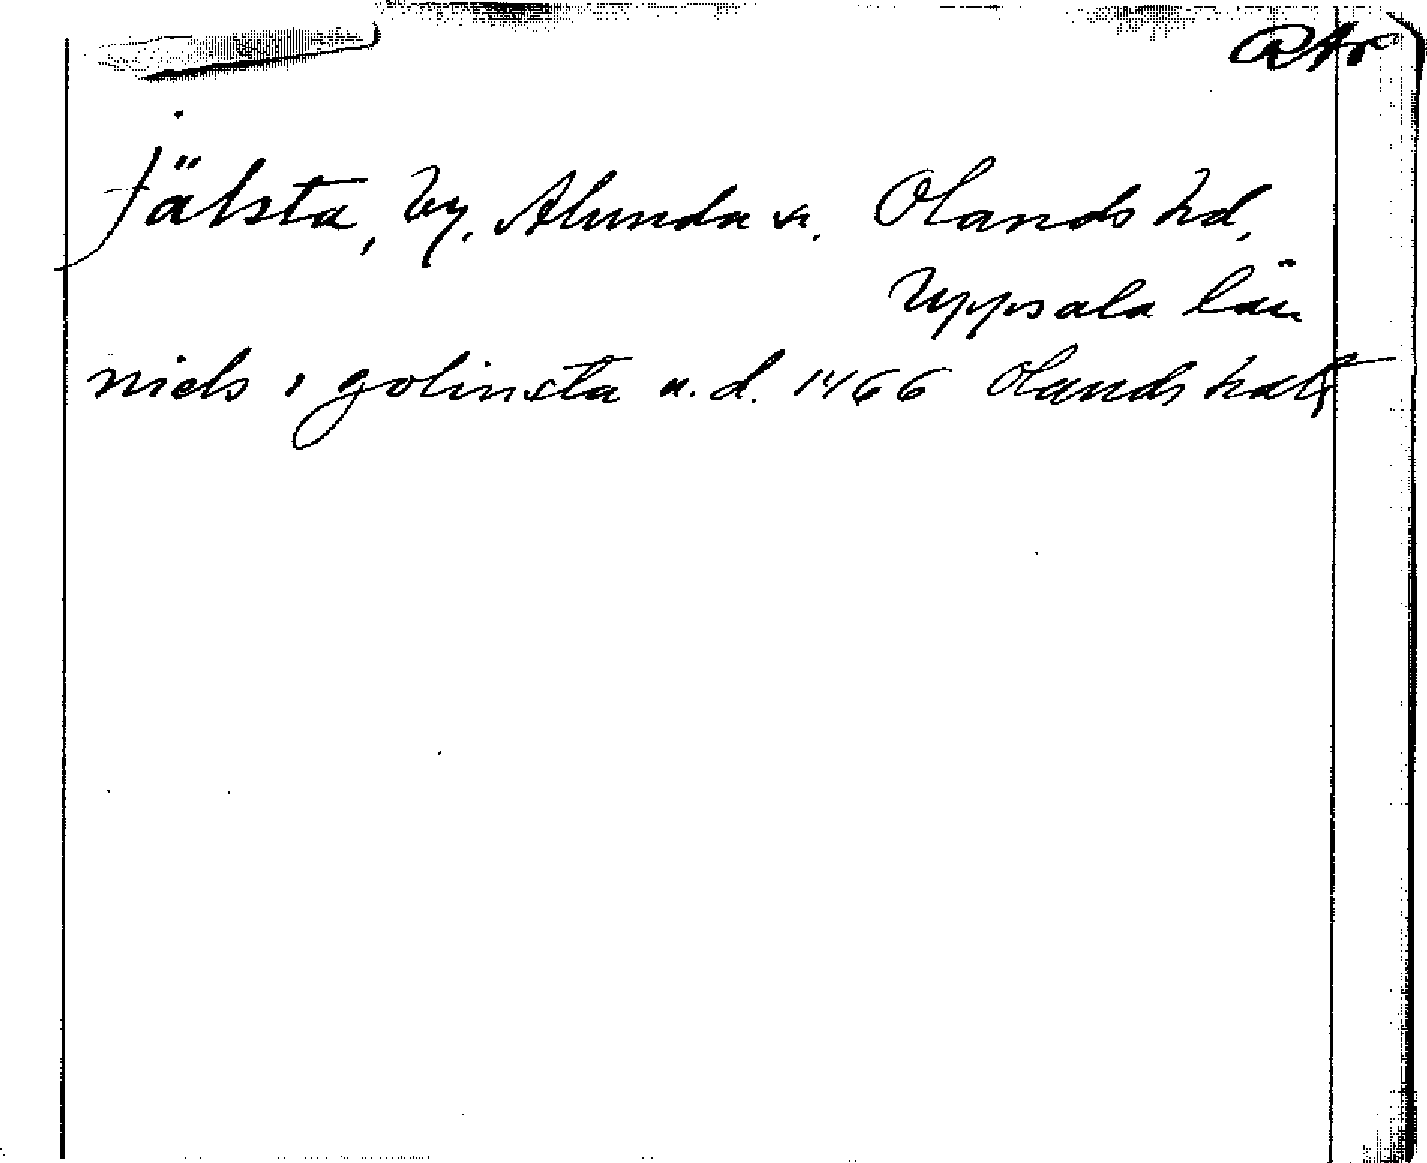 RAp
Jälsta, by. Alunda sn. Olands hd,
Uppsala län
niels i golinsta u.d. 1466 Olands hdr